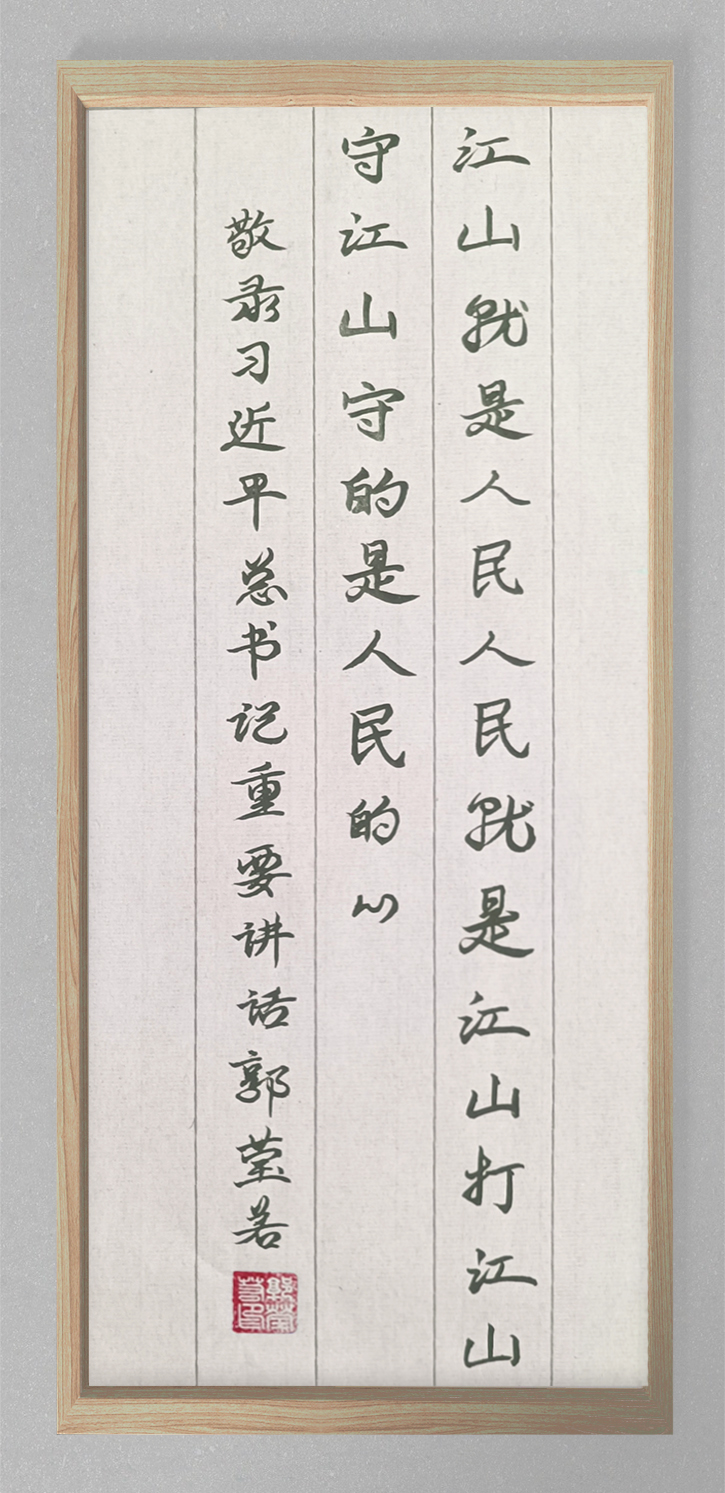 江山就是人民人民就是江山打江山
守江山守的是人民的心
敬录习近平总书记重要讲话郭莹若
郭莹若印